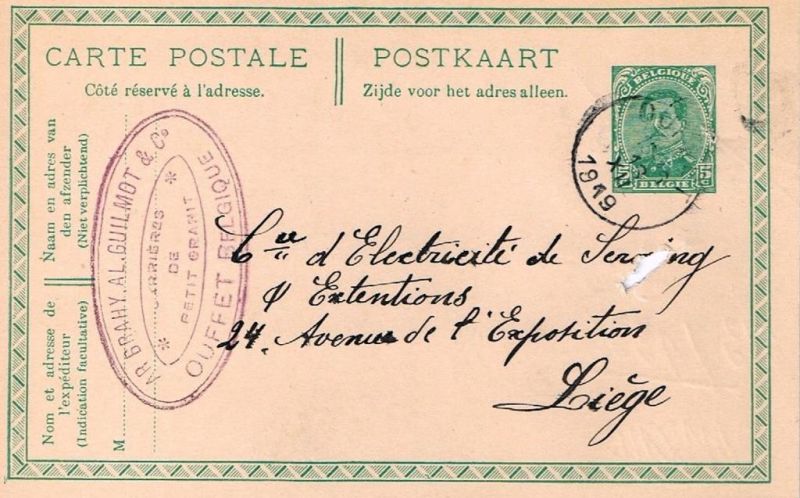 CARTE POSTALE
Côté réservé à l'adresse.
POSTKAART
Zijde voor het adres alleen.
BELGIQUE
5c 5c
BELGIË
1919
Naam en adres van
den afzender
(Niet verplichtend)
Nom et adresse de
l'expéditeur
(Indication facultative)
M
AR BRAHY. AL. GUILMOT & Cº
CARRIÈRES
DE
PETIT GRANIT
OUFFET BELGIQUE
Cie d'Electricité de Seraing
& Extentions
24. Avenue de l'Exposition
Liège